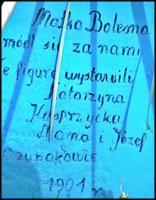 Matko Bolesna
módl się za nami
Tę figurę wystawili
Katarzyna
Kasprzycka
Mama i Józef
Czubakowie
1901 r.